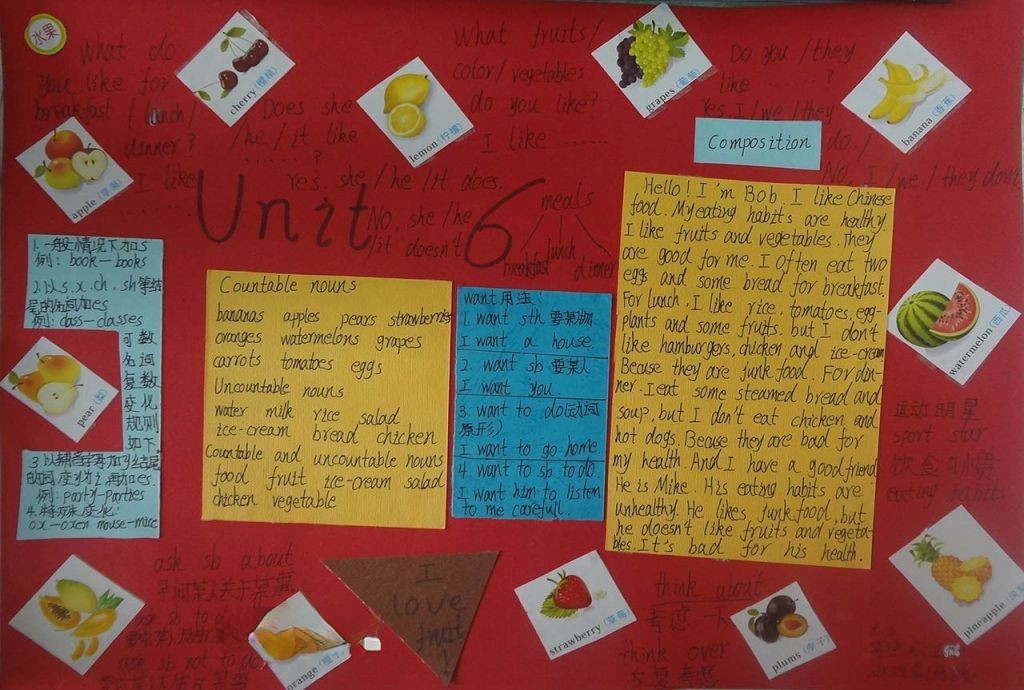 水果
What do
you like for
breakfast / lunch /
dinner?
I like
......
cherry (樱桃)
Does she
/he / it like
......?
Yes. she / he / it does.
No, she / he
/ it doesn't
lemon (柠檬)
What fruits /
color / vegetables
do you like?
I like ......
grapes (葡萄)
Do you / they
like ......?
Yes, I / we / they
do./
No, I / we / they don't
banana (香蕉)
apple (苹果)
Unit 6
meals
breakfast lunch dinner
Composition
Hello! I'm Bob. I like Chinese
food. My eating habits are healthy.
I like fruits and vegetables. They
are good for me. I often eat two
eggs and some bread for breakfast.
For lunch, I like rice, tomatoes, egg-
plants and some fruits, but I don't
like hamburgers, chicken and ice-cream
Becuse they are junk food. For din-
ner. I eat some steamed bread and
soup, but I don't eat chicken and
hot dogs. Becuse they are bad for
my health. And I have a good friend
He is Mike. His eating habits are
unhealthy. He likes junk food, but
he doesn't like fruits and vegeta-
bles. It's bad for his health.
1. 一般情况下加s
例: book—books
2. 以s. x. ch. sh等结
尾的名词加es
例: class—classes
可数
名词
复数
变化
规则
如下
3. 以辅音字母加y结尾
的词变y为i再加es.
例: party-parties
4. 特殊变化:
ox-oxen mouse-mice
pear (梨)
Countable nouns
bananas apples pears strawberries
oranges watermelons grapes
carrots tomatoes eggs
Uncountable nouns
water milk rice salad
ice-cream bread chicken
Countable and uncountable nouns
food fruit ice-cream salad
chicken vegetable
want用法:
1. want sth 要某物
I want a house.
2. want sb 要某人
I want you.
3. want to do(动词
原形)
I want to go home.
4. want to sb to do
I want him to listen
to me carefull.
watermelon (西瓜)
运动明星
sport star
饮食习惯
eating habits
ask sb about
ask sb to do
ask sb not to do
orange (橙子)
I
love
fruit
!
strawberry (草莓)
think about
考虑一下
think over
反复考虑
plums (李子)
pineapple